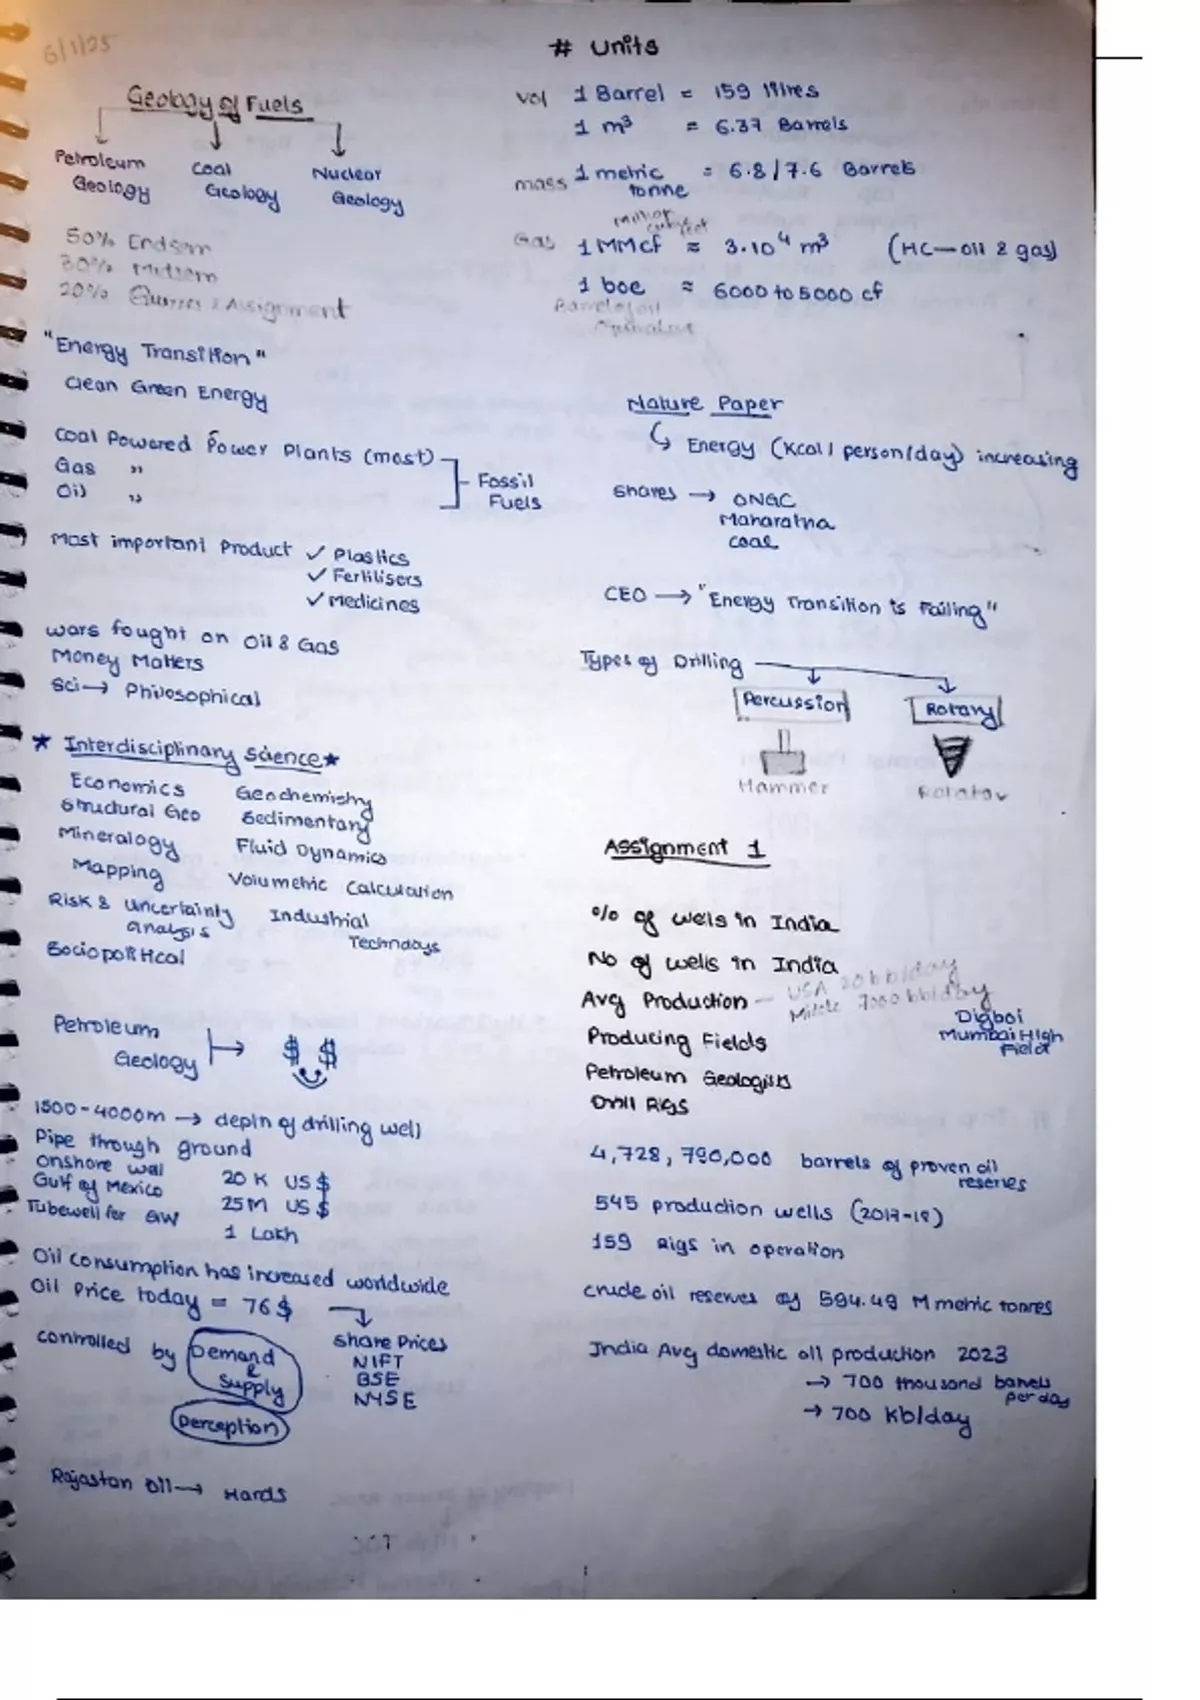 6/1/25
Geology of Fuels
Petroleum Geology
Coal Geology
Nuclear Geology
50% Endsem
30% Midsem
20% Quizzes & Assignment
"Energy Transition"
Clean Green Energy
Coal Powered Power Plants (most)
Gas "
Oil "
Fossil Fuels
Most important Product ✓ Plastics
✓ Fertilisers
✓ Medicines
Wars fought on Oil & Gas
Money Matters
Sci → Philosophical
★ Interdisciplinary Science ★
Economics Geochemistry
Structural Geo Sedimentary
Mineralogy Fluid Dynamics
Mapping Volumetric Calculation
Risk & Uncertainty analysis Industrial
Sociopolitical
Petroleum Geology → $ $
1500-4000m → depth of drilling well
Pipe through ground
Onshore wal 20 K US $
Gulf of Mexico 25M US $
Tubewell for GW 1 Lakh
Oil consumption has increased worldwide
Oil Price today = 76$
Share Prices
NIFT
BSE
NYSE
Controlled by Demand & Supply
Perception
Rajastan Oil → Hards
# Units
Vol 1 Barrel = 159 litres
1 m³ = 6.37 Barrels
mass 1 metric tonne = 6.8/7.6 Barrels
Gas 1 MMcf ≈ 3.10⁴ m³ (HC—oil & gas)
1 boe ≈ 6000 to 5000 cf
Barrel of oil
Equivalent
Nature Paper
↳ Energy (Kcal/person/day) increasing
Shares → ONGC
Maharatna
Coal
CEO → "Energy Transition is Failing"
Types of Drilling
Percussion
Rotary
Hammer
Rotator
Assignment 1
% of wels in India
No of wells in India
Avg Production - USA 20 bb/day
7000 bbl/day
Producing Fields
Digboi
Mumbai High Field
Petroleum Geologists
Drill Rigs
4,728,790,000 barrels of proven oil reserves
545 production wells (2017-18)
159 Rigs in operation
Crude oil reserves of 594.49 M metric tonnes
India Avg domestic oil production 2023
→ 700 thousand barrels per day
→ 700 kb/day